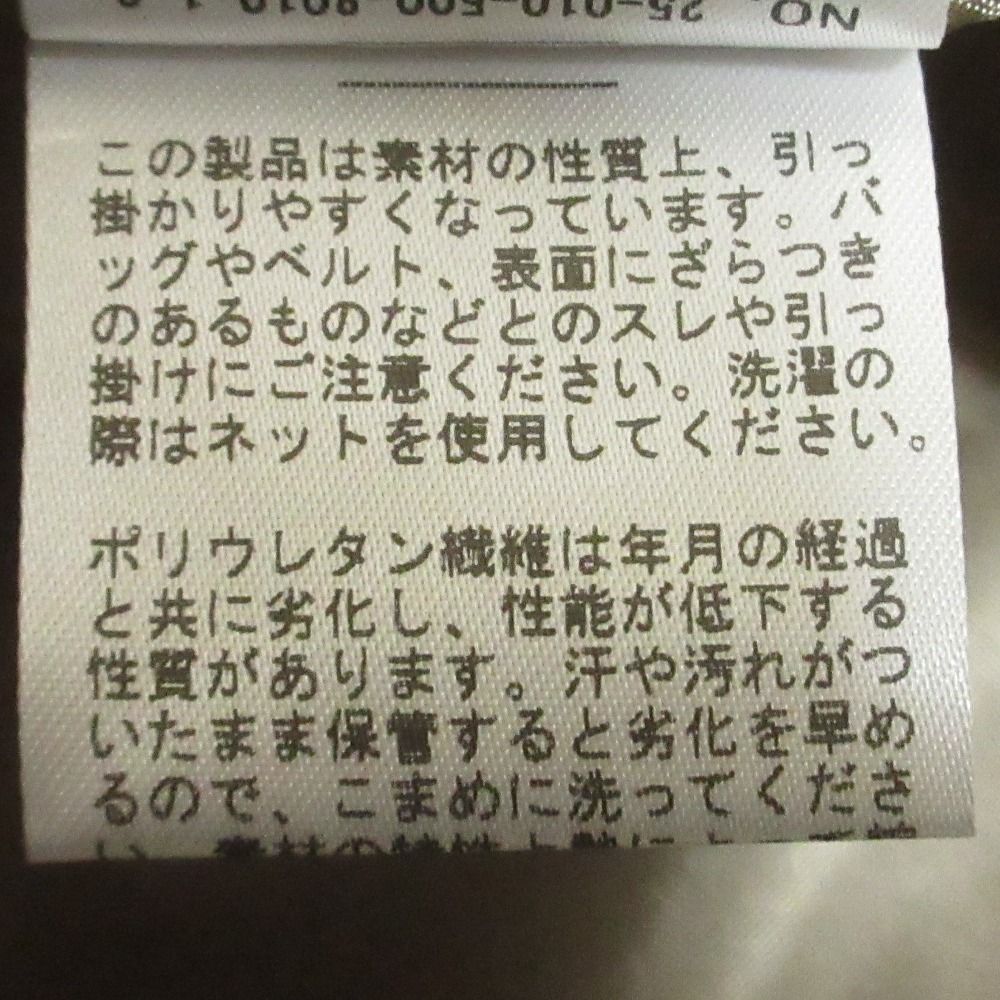 NO. 25-010-500-8010-1-0
この製品は素材の性質上、引っ
掛かりやすくなっています。バ
ッグやベルト、表面にざらつき
のあるものなどとのスレや引っ
掛けにご注意ください。洗濯の
際はネットを使用してください。
ポリウレタン繊維は年月の経過
と共に劣化し、性能が低下する
性質があります。汗や汚れがつ
いたまま保管すると劣化を早め
るので、こまめに洗ってくださ
い。素材の特性上